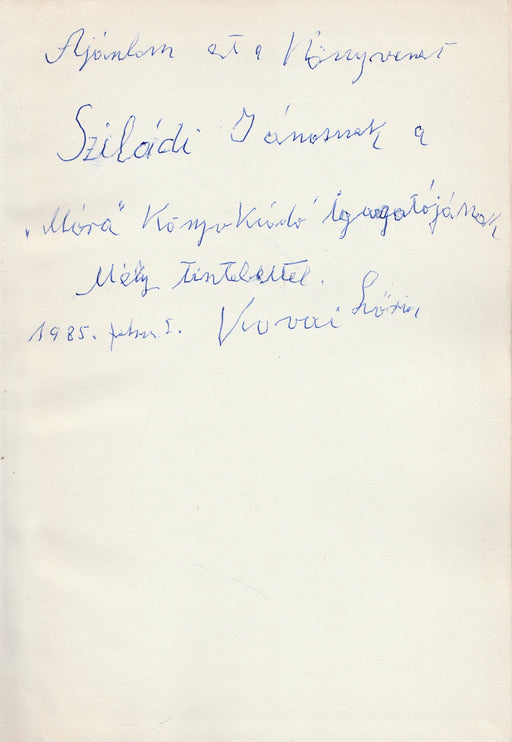 Ajánlom ezt a Könyvemet
Sziládi Jánosnak a
"Móra" Könyvkiadó Igazgatójának
Mély tisztelettel.
1985. febr. 5. Kovai Lőrinc